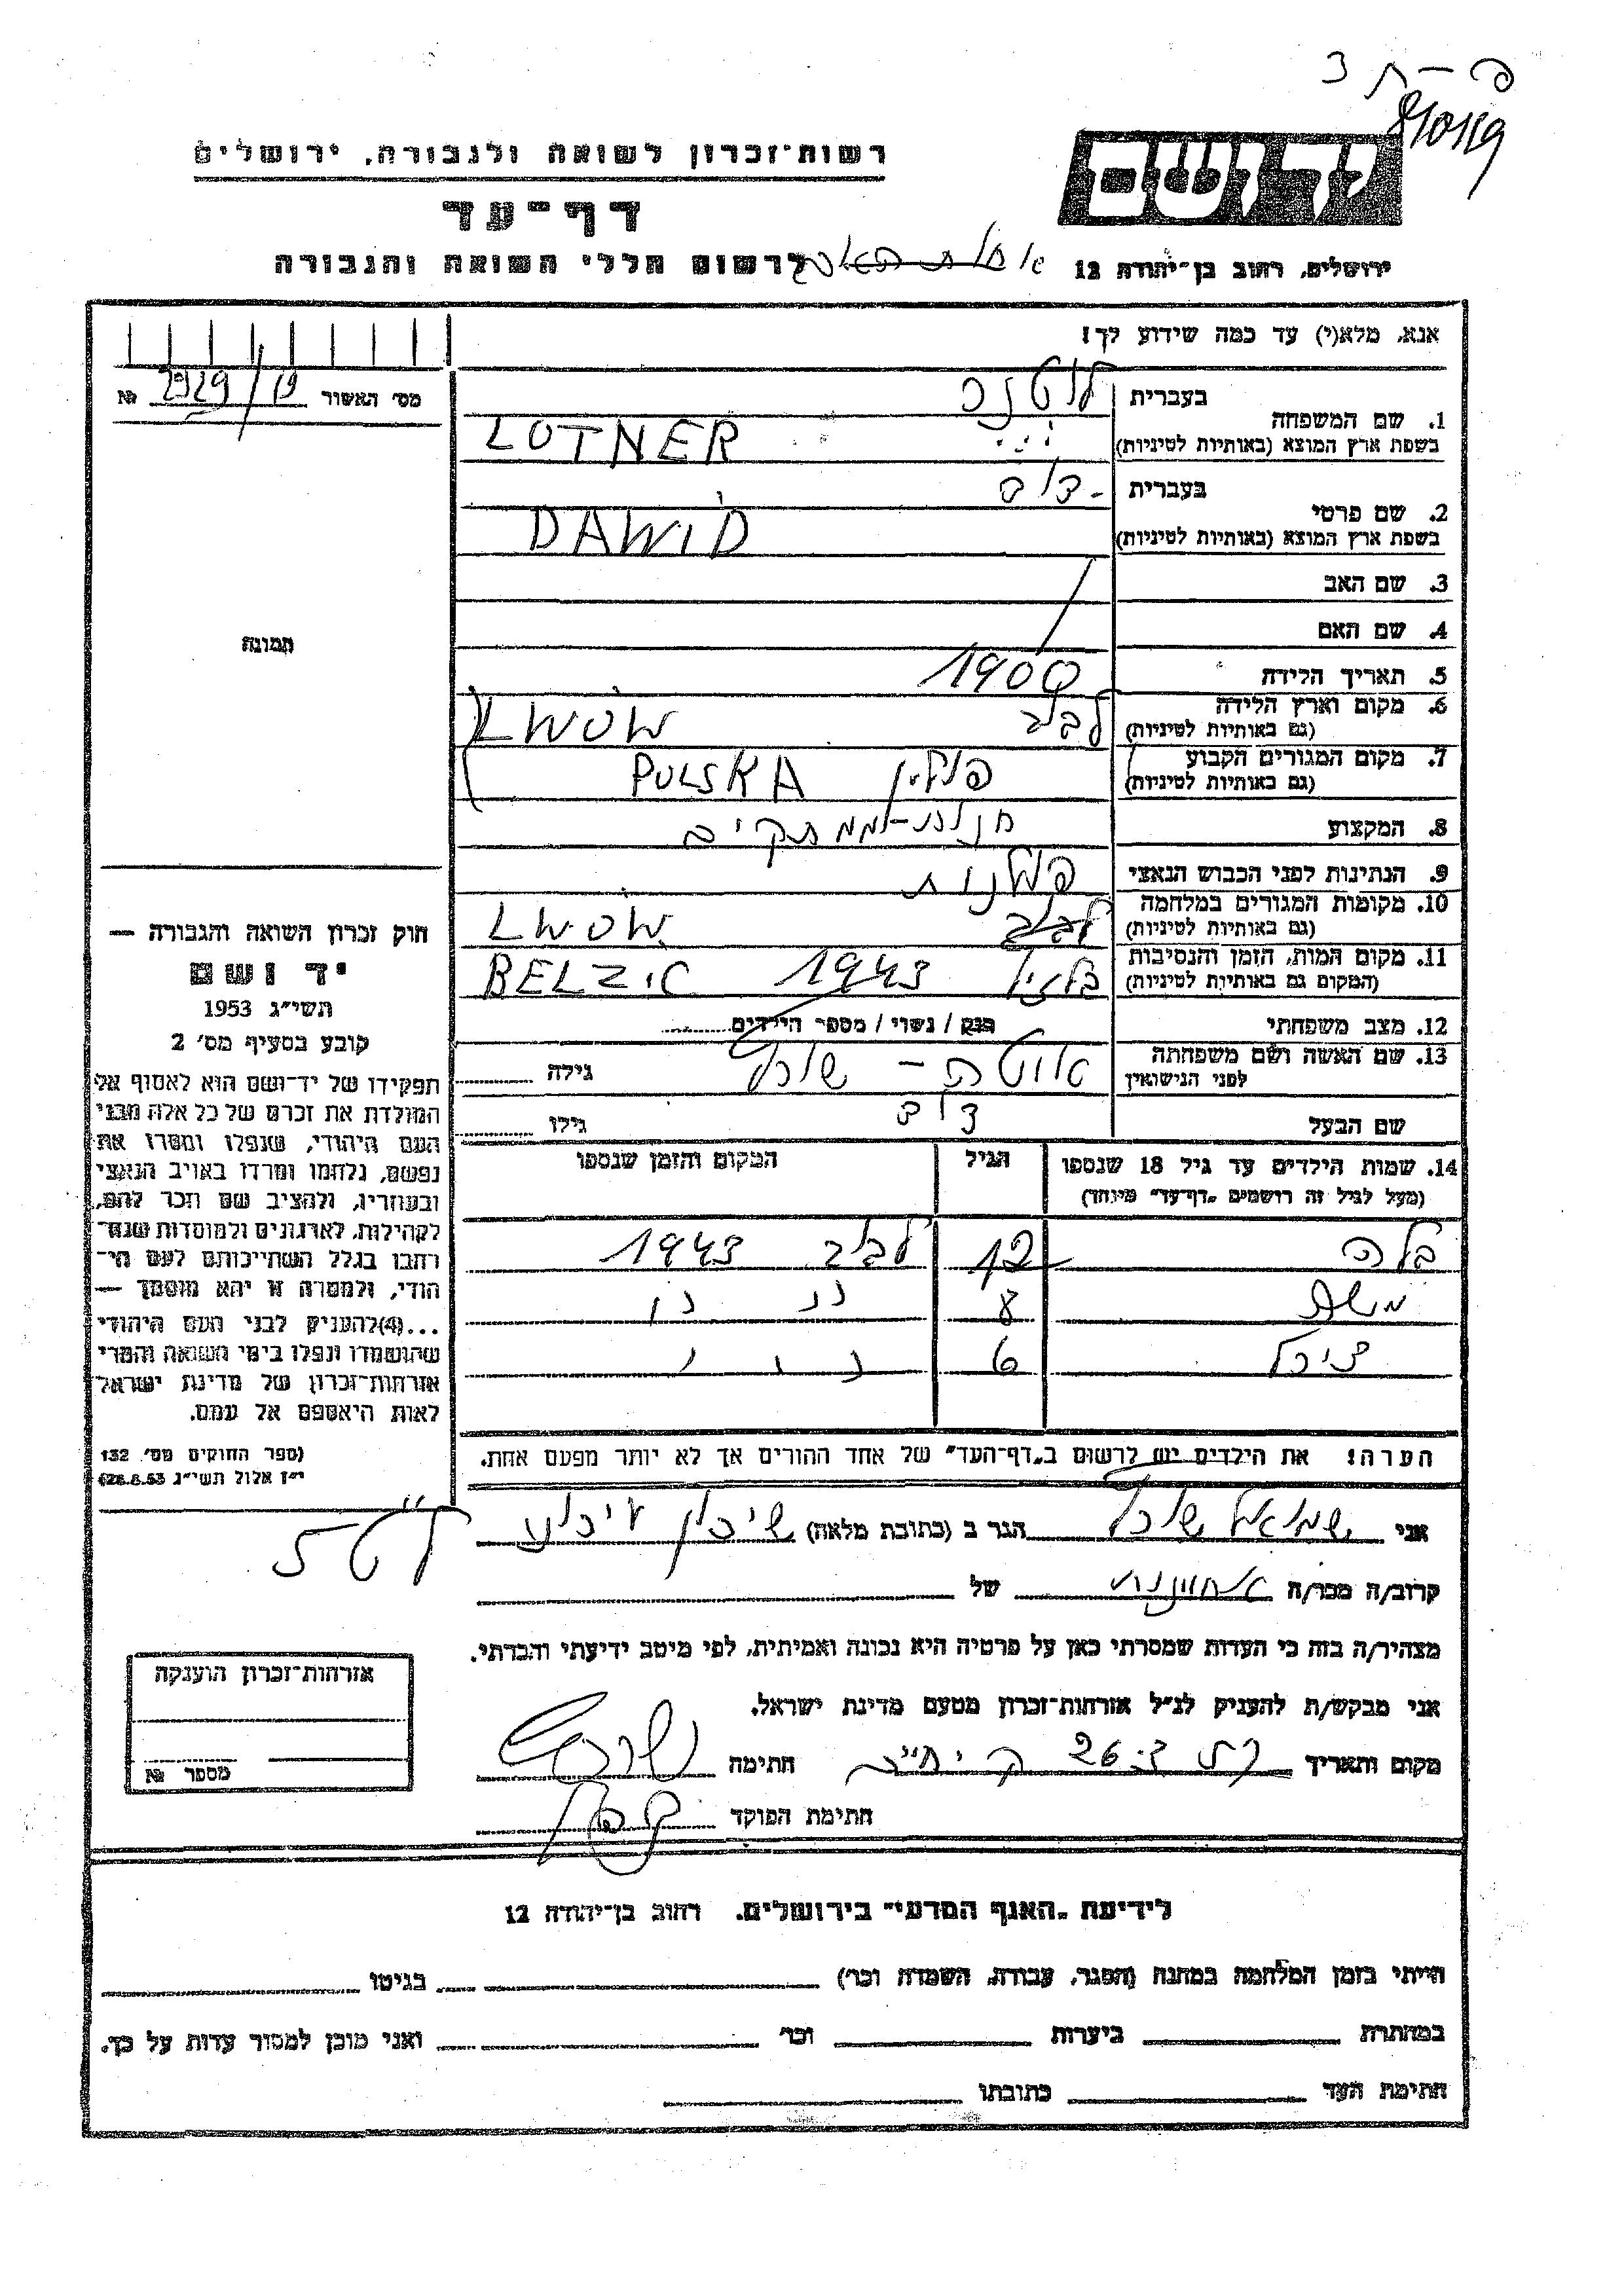 רשות־זכרון לשואה ולגבורה, ירושלים
יד ושם
דף־עד
לרשום חללי השואה והגבורה
ירושלים, רחוב בן־יהודה 12
אנא, מלא(י) עד כמה שידוע לך!
מס׳ האשור №
1. שם המשפחה
בעברית לוטנר
בשפת ארץ המוצא (באותיות לטיניות) LOTNER
2. שם פרטי
בעברית דוד
בשפת ארץ המוצא (באותיות לטיניות) DAWID
3. שם האב
4. שם האם
תמונה
5. תאריך הלידה 1900
6. מקום וארץ הלידה לבוב LWOW
(גם באותיות לטיניות)
7. מקום המגורים הקבוע פולין POLSKA
(גם באותיות לטיניות)
8. המקצוע חנות-ממתקים
9. הנתינות לפני הכבוש הנאצי פולנית
10. מקומות המגורים במלחמה לבוב LWOW
(גם באותיות לטיניות)
11. מקום המות, הזמן והנסיבות 1943
(המקום גם באותיות לטיניות)
12. מצב משפחתי רווק / נשוי / מספר הילדים
13. שם האשה ושם משפחתה גילה
לפני הנישואין
שם הבעל דוד גילו
14. שמות הילדים עד גיל 18 שנספו הגיל המקום והזמן שנספו
(מעל לגיל זה רושמים „דף־עד״ מיוחד)
בלה 12 לבוב 1943
משה 8 " "
6
הערה! את הילדים יש לרשום ב„דף־העד״ של אחד ההורים אך לא יותר מפעם אחת.
חוק זכרון השואה והגבורה —
יד ושם
תשי״ג 1953
קובע בסעיף מס׳ 2
תפקידו של יד־ושם הוא לאסוף אל
המולדת את זכרם של כל אלה מבני
העם היהודי, שנפלו ומסרו את
נפשם, נלחמו ומרדו באויב הנאצי
ובעוזריו, ולהציב שם וזכר להם,
לקהילות, לארגונים ולמוסדות שנח־
רבו בגלל השתייכותם לעם הי־
הודי, ולמטרה זו יהא מוסמך —
...(4)להעניק לבני העם היהודי
שהושמדו ונפלו בימי השואה והמרי
אזרחות־זכרון של מדינת ישראל
לאות היאספם אל עמם.
(ספר החוקים מס׳ 132
י״ז אלול תשי״ג 28.8.53)
אני שמואל הגר ב (כתובת מלאה) שיכון
קרוב/ה מכר/ה של
מצהיר/ה בזה כי העדות שמסרתי כאן על פרטיה היא נכונה ואמיתית, לפי מיטב ידיעתי והכרתי.
אני מבקש/ת להעניק לנ״ל אזרחות־זכרון מטעם מדינת ישראל.
מקום ותאריך חתימה
חתימת הפוקד
אזרחות־זכרון הוענקה
מספר №
לידיעת „האגף המדעי״ בירושלים. רחוב בן־יהודה 12
הייתי בזמן המלחמה במחנה (הסגר, עבודה, השמדה וכו׳) בגיטו
במחתרת ביערות וכו׳ ואני מוכן למסור עדות על כך.
חתימת העד כתובתו